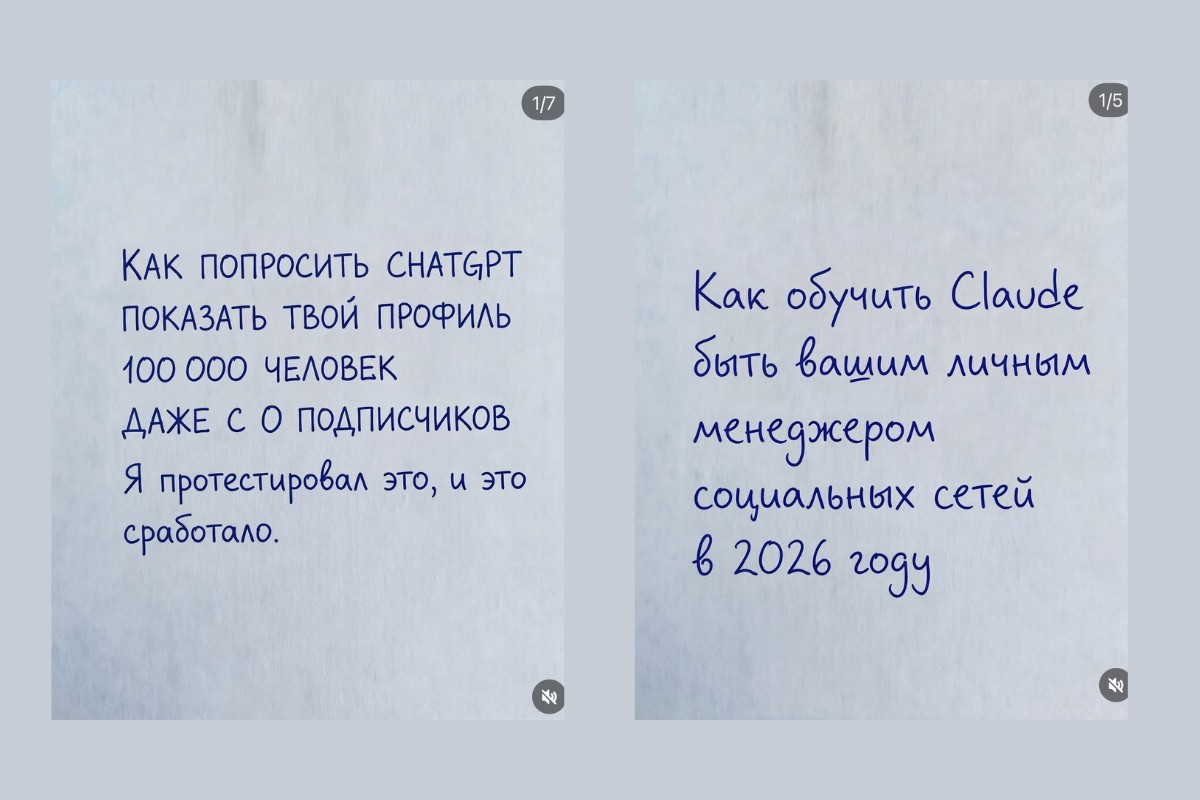 1/7
КАК ПОПРОСИТЬ CHATGPT
ПОКАЗАТЬ ТВОЙ ПРОФИЛЬ
100 000 ЧЕЛОВЕК
ДАЖЕ С 0 ПОДПИСЧИКОВ
Я протестировал это, и это
сработало.
1/5
Как обучить Claude
быть вашим личным
менеджером
социальных сетей
в 2026 году